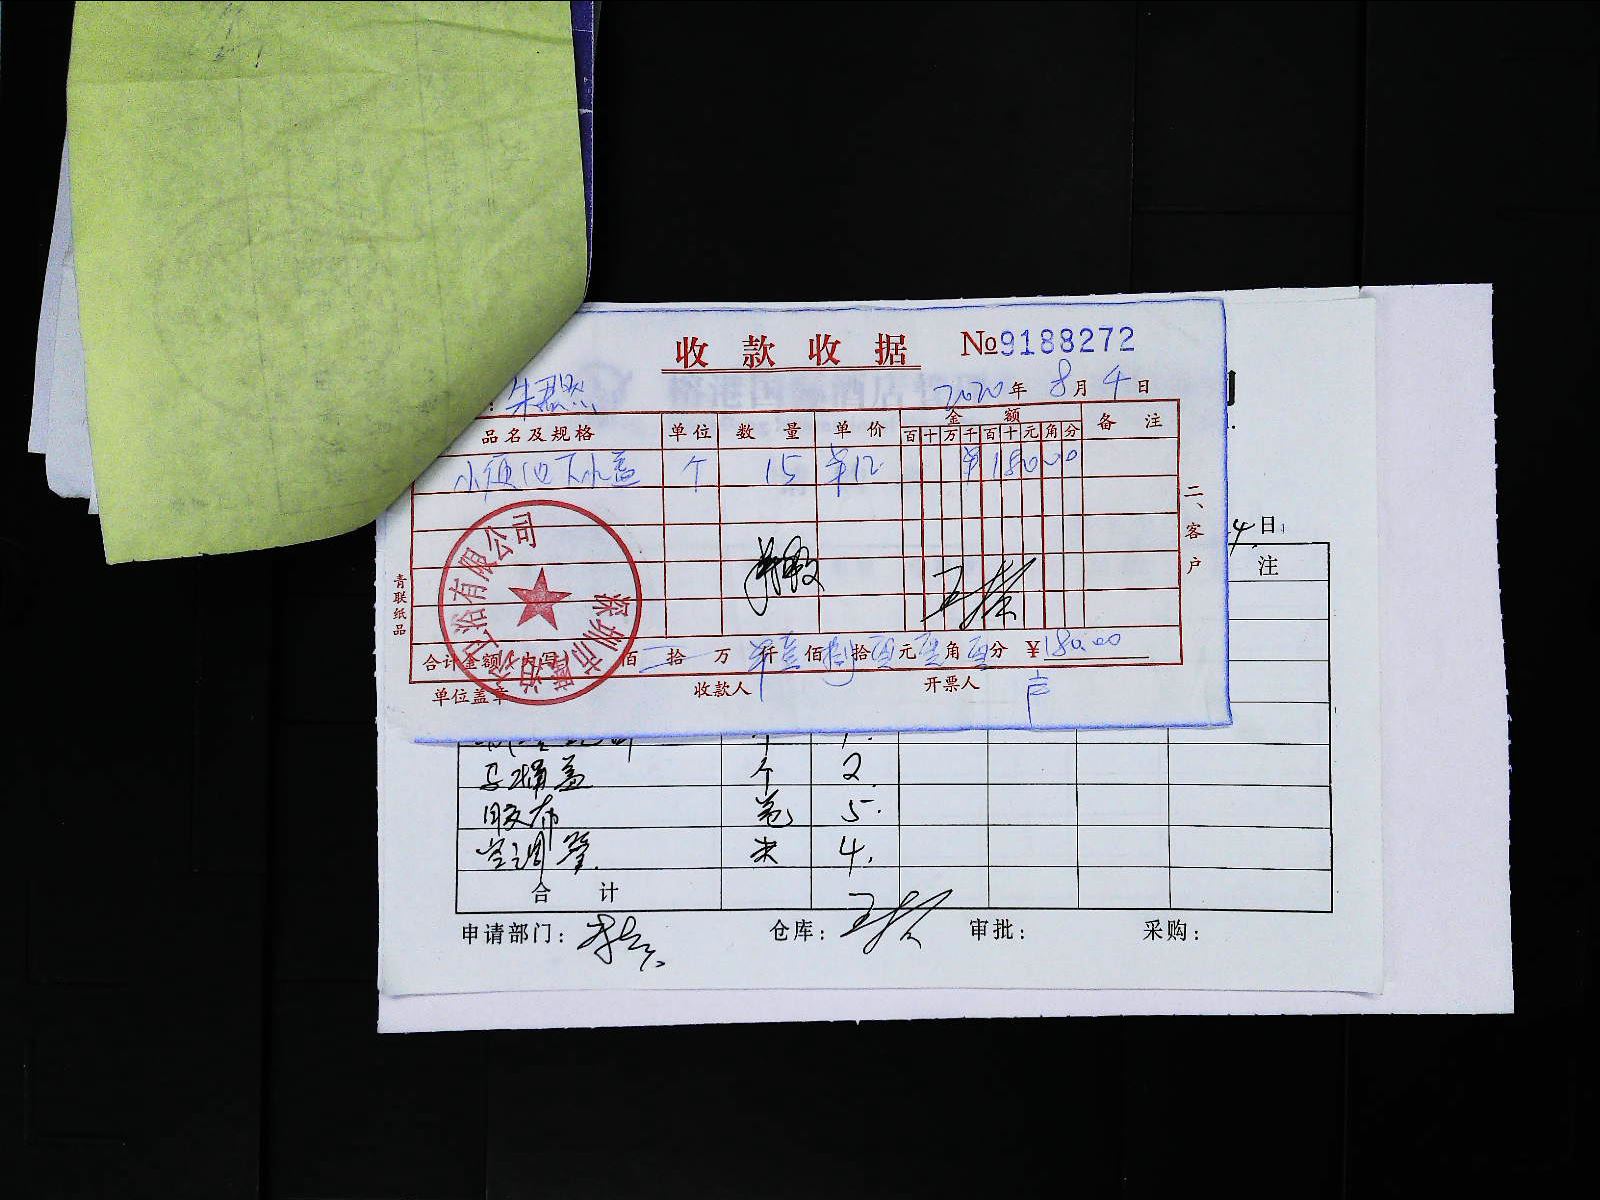 收款收据 №9188272
2020年8月4日
品名及规格 单位 数量 单价 金额 备注
百十万千百十元角分
小便池下水盖 个 15 单12 180.00
二、客户
青联纸品
深圳市 卫浴有限公司
合计金额 百 拾 万 仟 佰 拾 元 角 分 ¥180.00
单位盖章 收款人 开票人
4日
注
马桶盖 个 2
胶布 卷 5
空调管 米 4
合计
申请部门： 仓库： 审批： 采购：